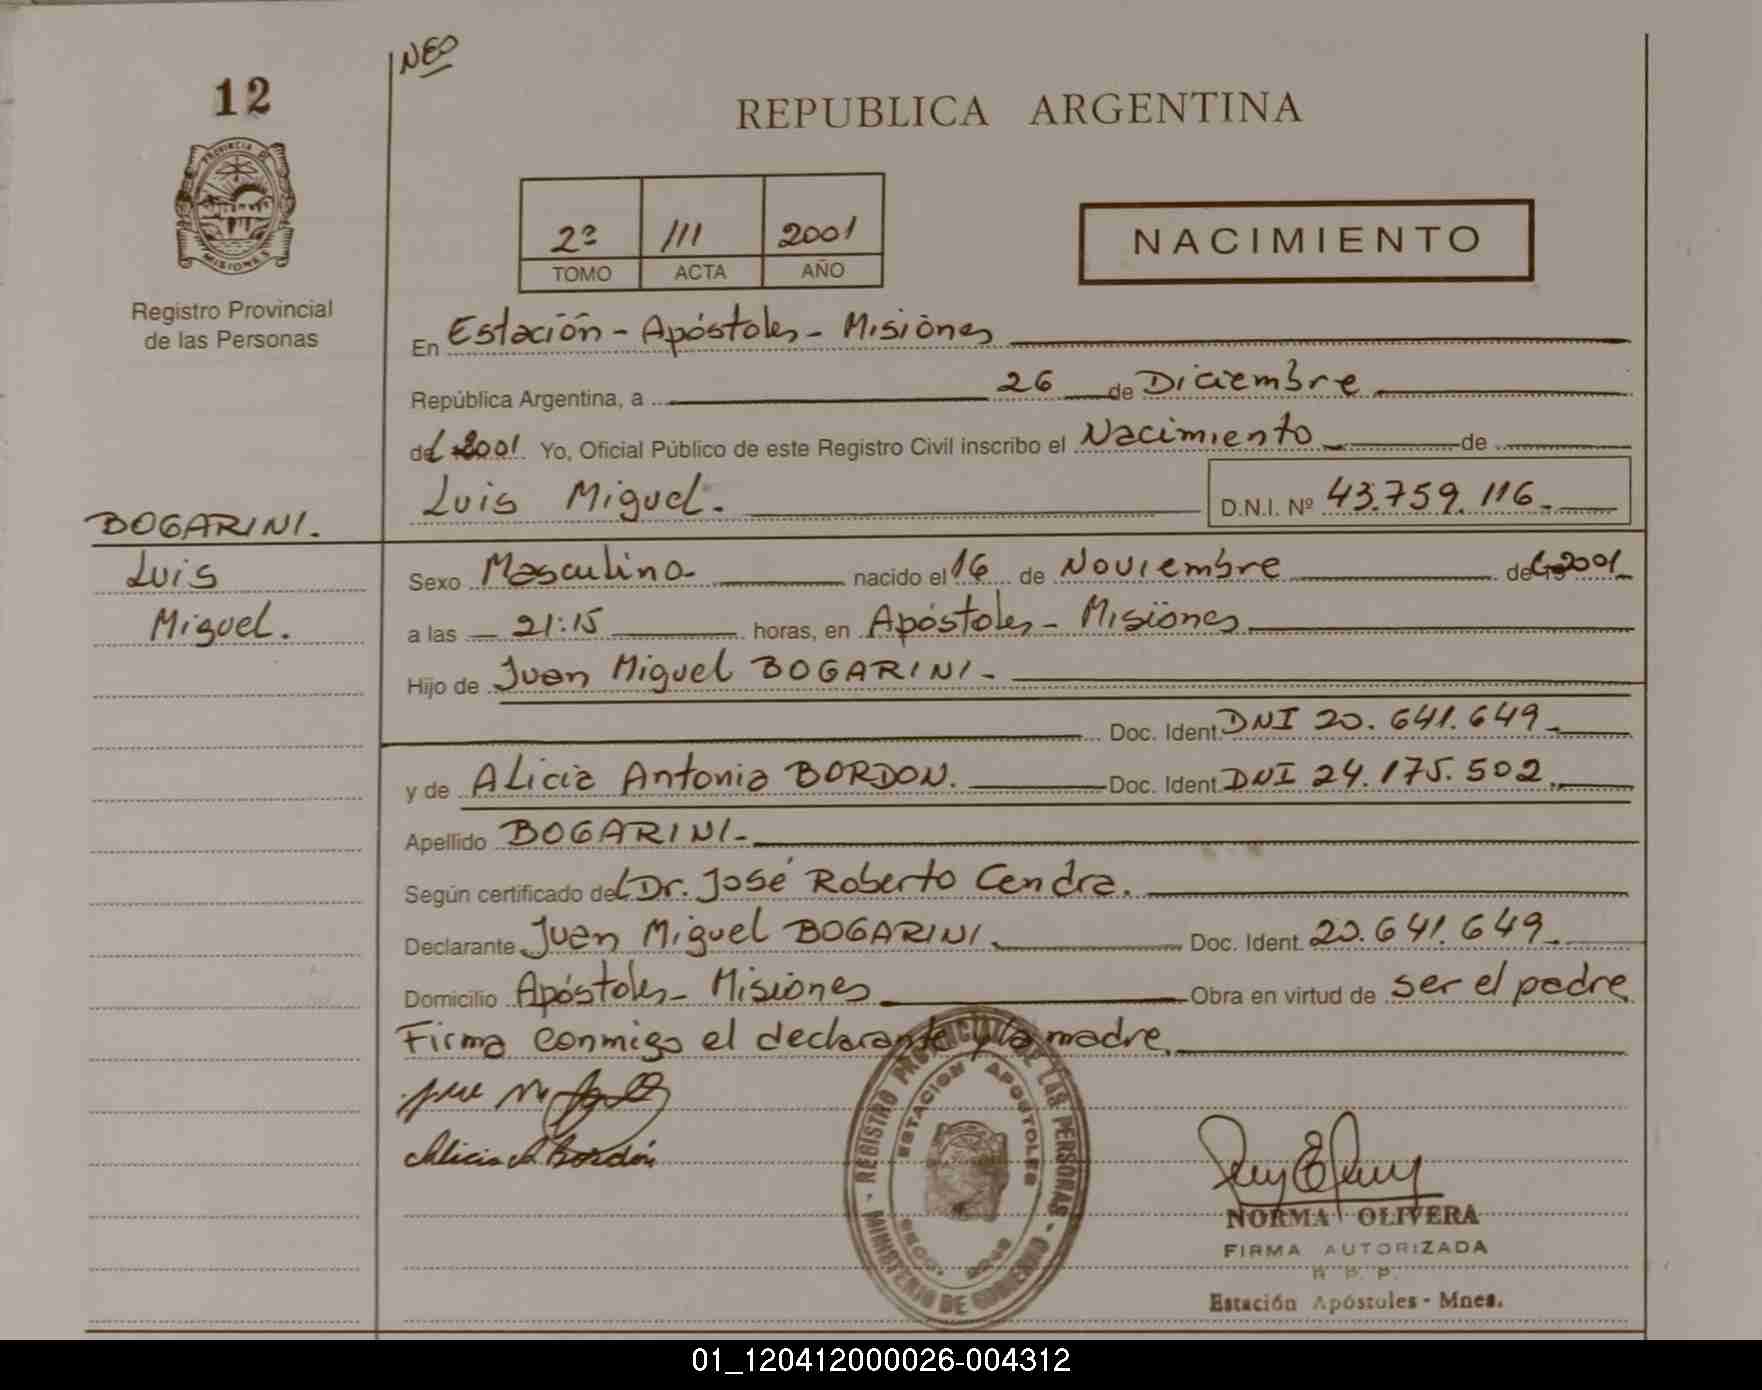 12
NEO
REPUBLICA ARGENTINA
PROVINCIA DE
MISIONES
Registro Provincial
de las Personas
2º 111 2001
TOMO ACTA AÑO
NACIMIENTO
En Estación - Apóstoles - Misiones
República Argentina, a 26 de Diciembre
del 2001. Yo, Oficial Público de este Registro Civil inscribo el Nacimiento de
Luis Miguel. D.N.I. Nº 43.759.116
BOGARINI.
Luis
Miguel.
Sexo Masculino nacido el 16 de Noviembre del 2001
a las 21:15 horas, en Apóstoles - Misiones
Hijo de Juan Miguel BOGARINI.
Doc. Ident. DNI 20.641.649
y de Alicia Antonia BORDON. Doc. Ident. DNI 24.175.502
Apellido BOGARINI.
Según certificado del Dr. José Roberto Cendra.
Declarante Juan Miguel BOGARINI Doc. Ident. 20.641.649
Domicilio Apóstoles - Misiones Obra en virtud de ser el padre
Firma conmigo el declarante y la madre
Alicia A Bordón
REGISTRO PROVINCIAL DE LAS PERSONAS - MINISTERIO DE GOBIERNO -
ESTACION APOSTOLES
NORMA OLIVERA
FIRMA AUTORIZADA
R. P. P.
Estación Apóstoles - Mnes.
01_120412000026-004312